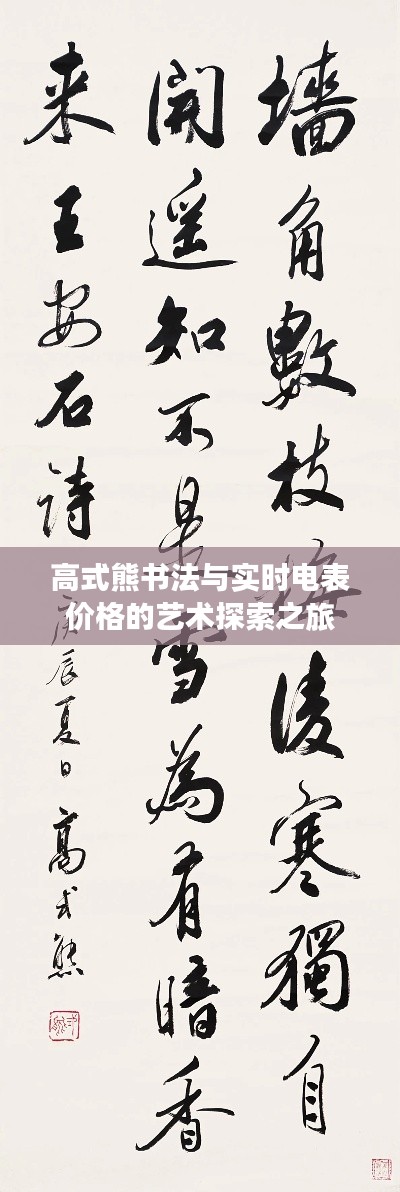 墙角數枝梅凌寒獨自
開遥知不是雪為有暗香
来王安石詩
庚辰夏日高式熊
高式熊书法与实时电表
价格的艺术探索之旅